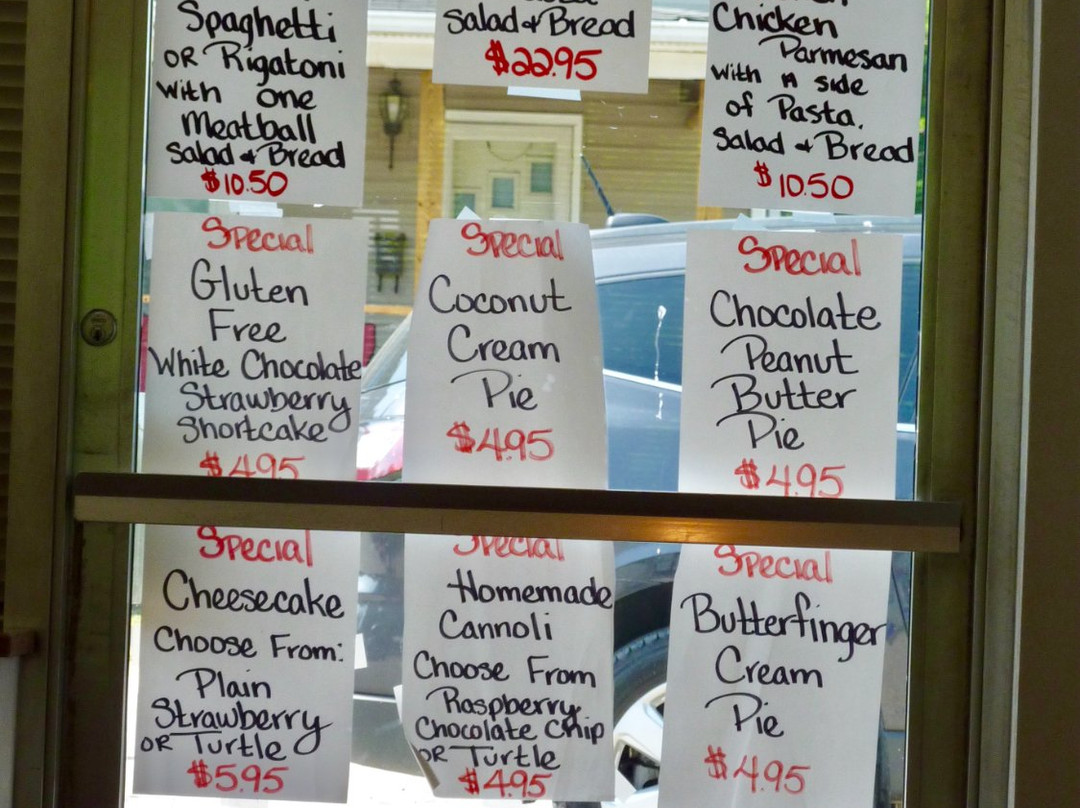 Spaghetti
OR Rigatoni
With one
Meatball
Salad & Bread
$10.50
Salad & Bread
$22.95
Chicken
Parmesan
With A side
of Pasta.
Salad & Bread
$10.50
Special
Gluten
Free
White Chocolate
Strawberry
Shortcake
$4.95
Special
Coconut
Cream
Pie
$4.95
Special
Chocolate
Peanut
Butter
Pie
$4.95
Special
Cheesecake
Choose From:
Plain
Strawberry
OR Turtle
$5.95
Special
Homemade
Cannoli
Choose From
Raspberry
Chocolate Chip
OR Turtle
$4.95
Special
Butterfinger
Cream
Pie
$4.95